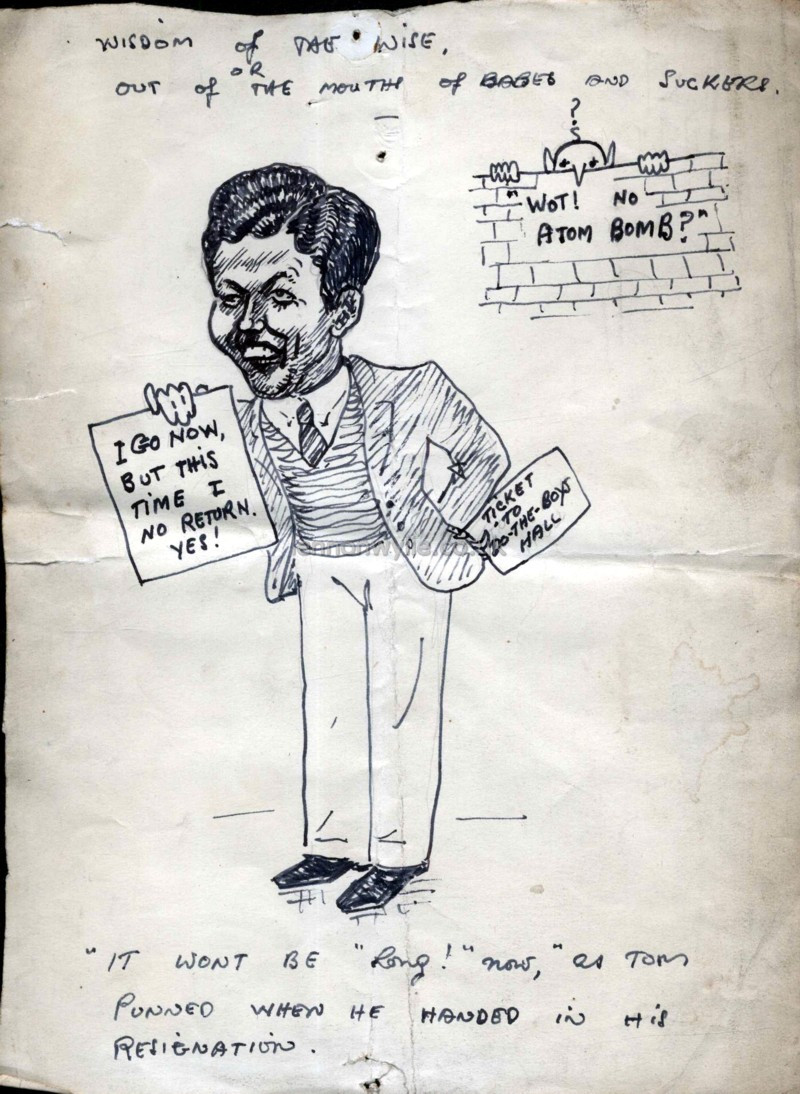 WISDOM of THE WISE,
OR
OUT of THE MOUTHS of BABES AND SUCKERS.
?
"WOT! NO
ATOM BOMB?"
I GO NOW,
BUT THIS
TIME I
NO RETURN.
YES!
TICKET
TO
DO-THE-BOYS
HALL
lennonwylie.co.uk
"IT WONT BE "Long!" now," as TOM
PUNNED WHEN HE HANDED IN HIS
RESIGNATION.